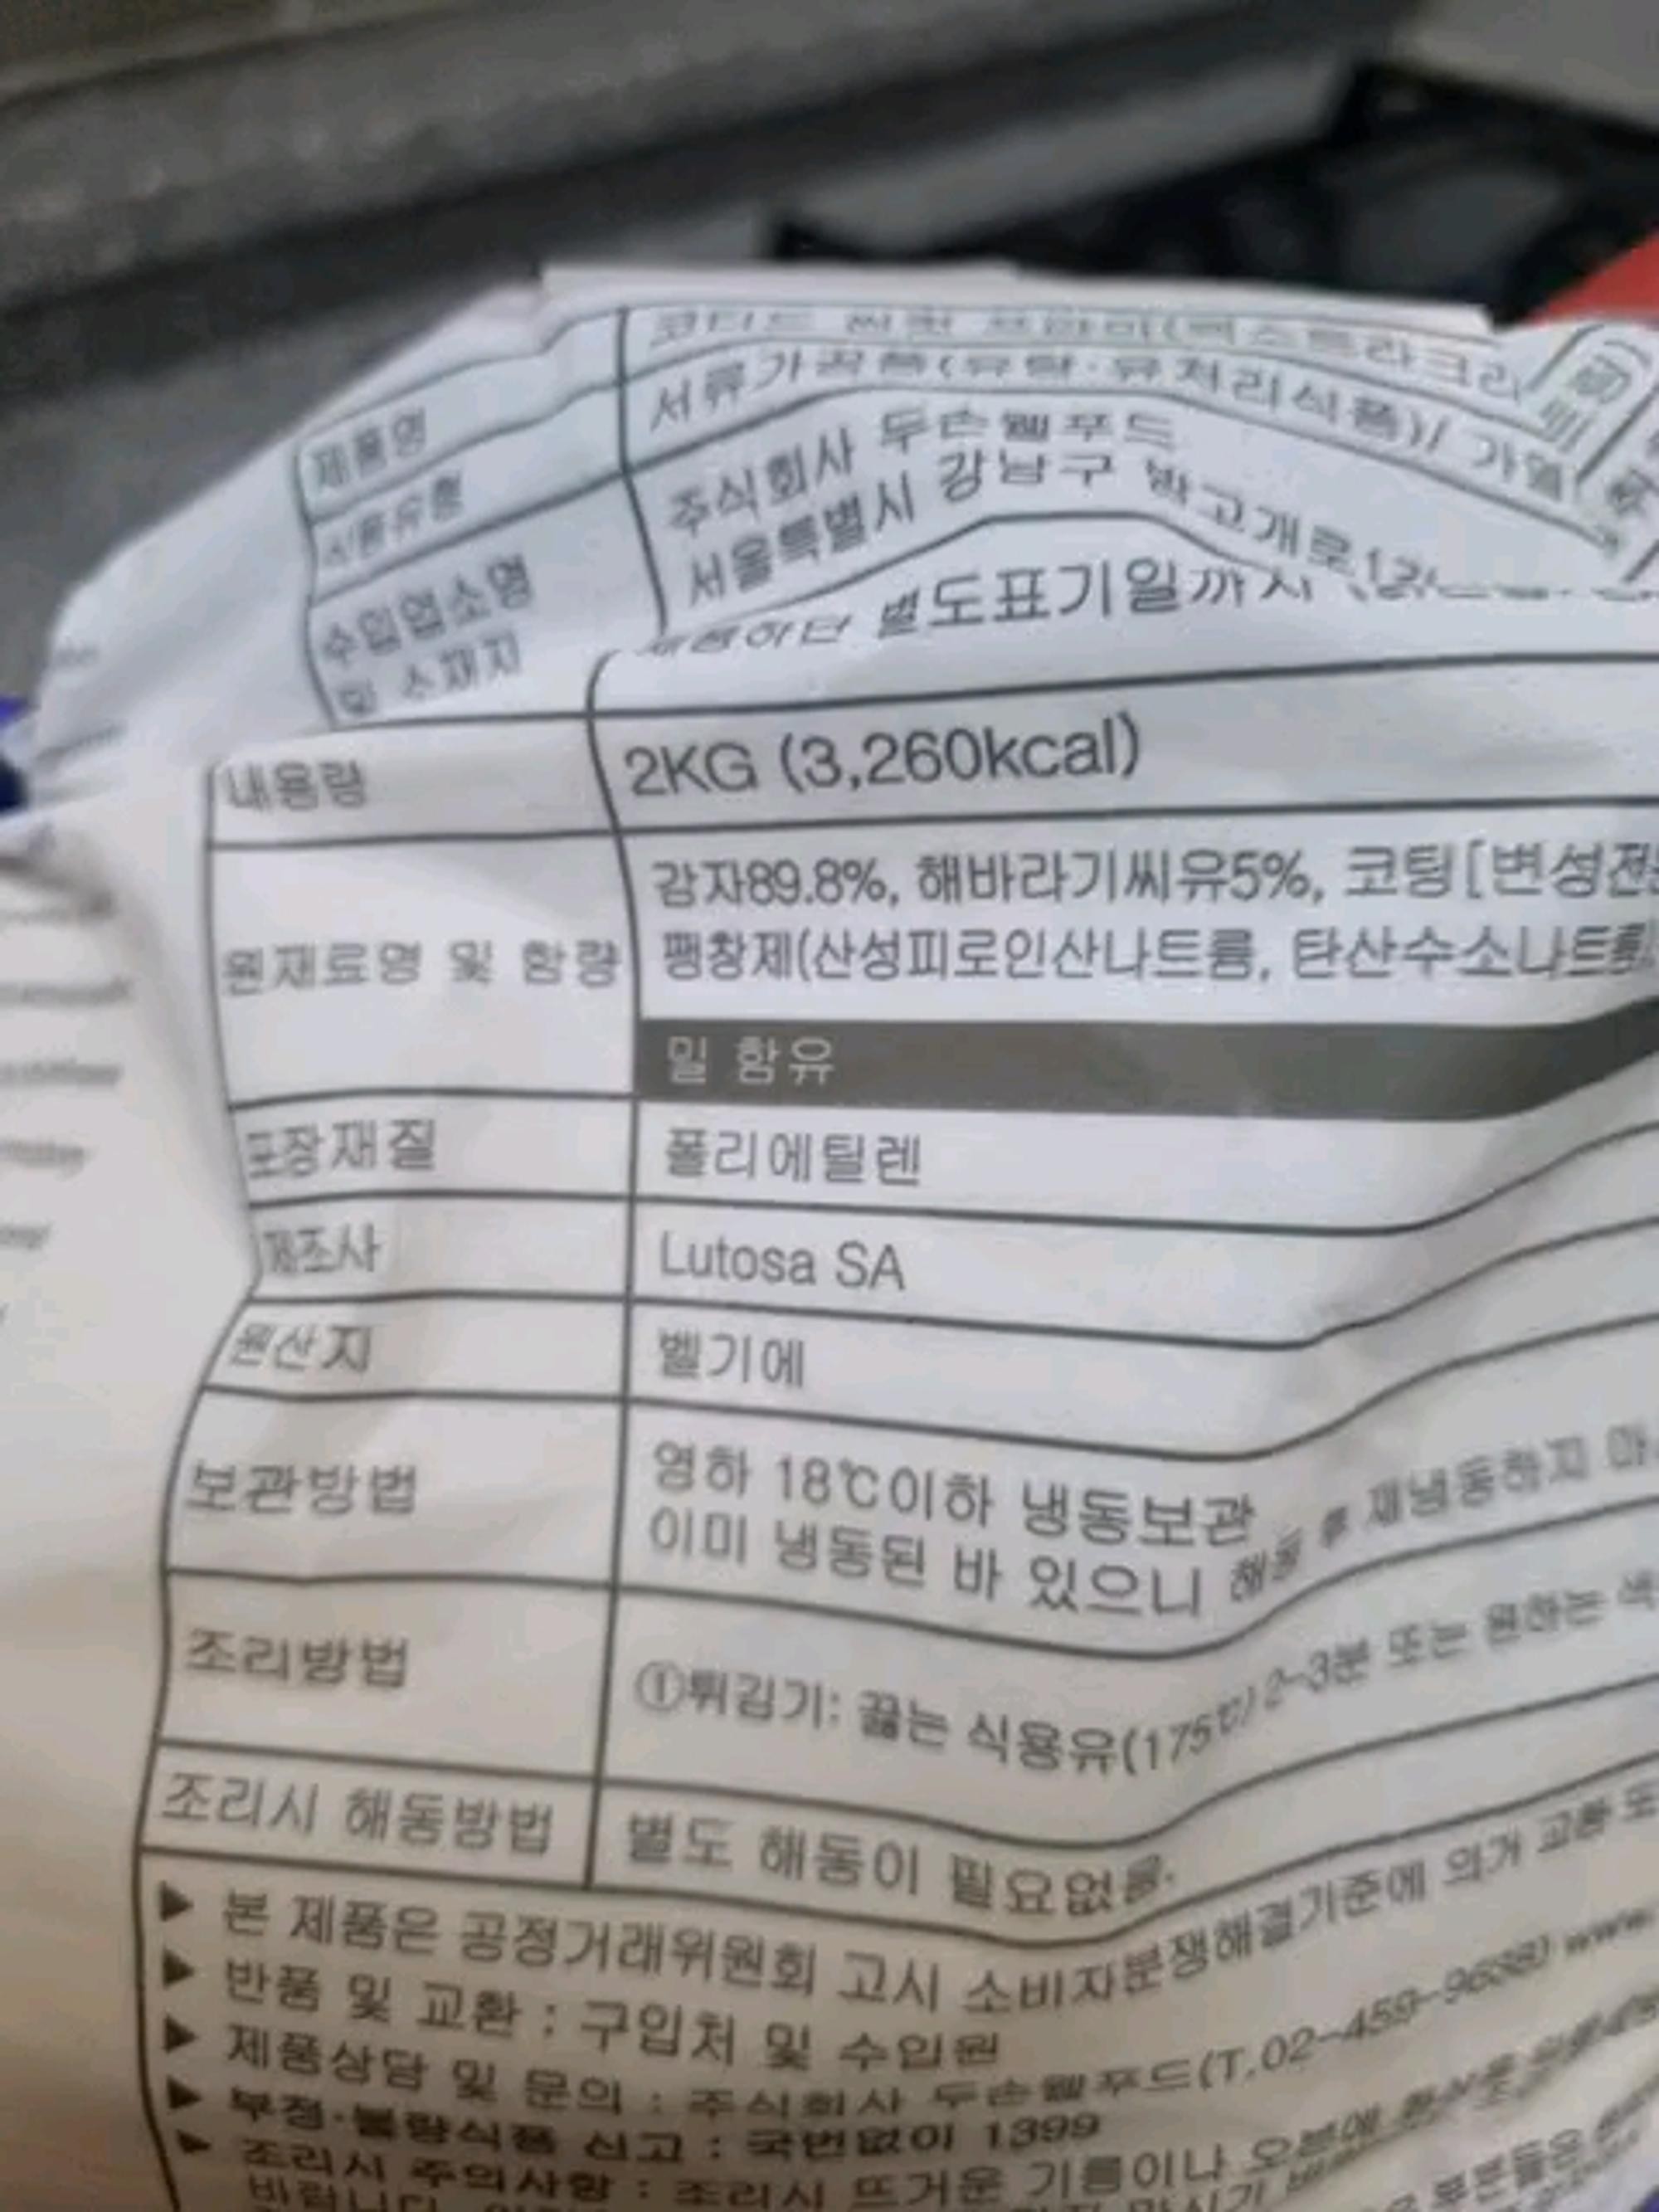 제품명
식품유형 서류가공품(유탕·유처리식품)/ 가열
수입업소명 및 소재지 주식회사 두손웰푸드
서울특별시 강남구 밤고개로
별도표기일까지
내용량 2KG (3,260kcal)
원재료명 및 함량 감자89.8%, 해바라기씨유5%, 코팅[변성전
팽창제(산성피로인산나트륨, 탄산수소나트륨
밀 함유
포장재질 폴리에틸렌
제조사 Lutosa SA
원산지 벨기에
보관방법 영하 18℃이하 냉동보관
이미 냉동된 바 있으니 해동 후 재냉동하지 마
조리방법 ①튀김기: 끓는 식용유(175℃) 2-3분 또는 원하는 색
조리시 해동방법 별도 해동이 필요없음.
▶ 본 제품은 공정거래위원회 고시 소비자분쟁해결기준에 의거 교환 또
▶ 반품 및 교환 : 구입처 및 수입원
▶ 제품상담 및 문의 : 주식회사 두손웰푸드(T.02-459-9688) www.
▶ 부정·불량식품 신고 : 국번없이 1399
▶ 조리시 주의사항 : 조리시 뜨거운 기름이나 오븐에
바랍니다.